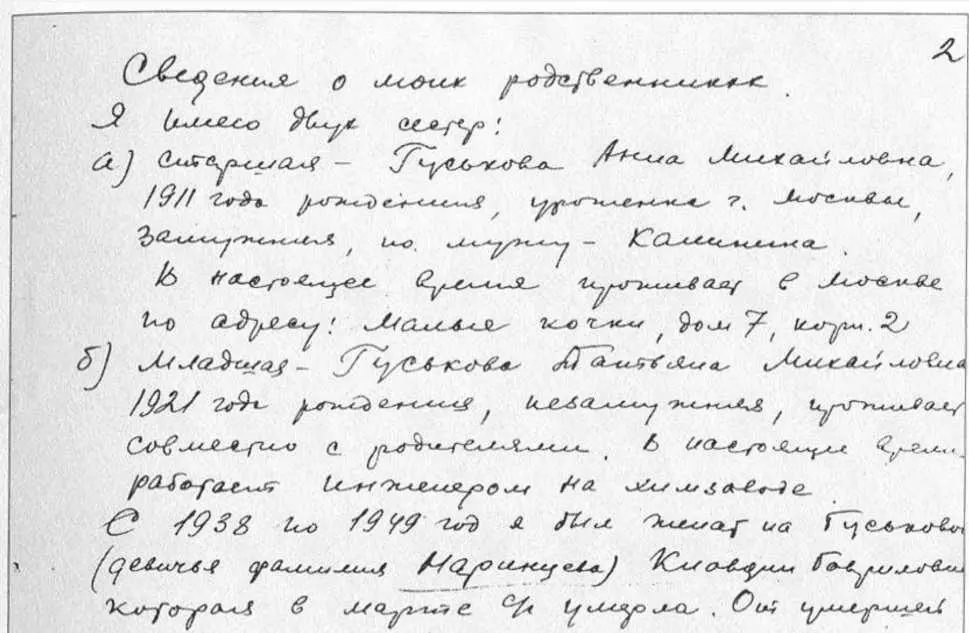 2
Сведения о моих родственниках.
Я имею двух сестер:
а) старшая – Гуськова Анна Михайловна,
1911 года рождения, уроженка г. Москвы,
замужняя, по мужу – Калинина.
В настоящее время проживает в Москве
по адресу: Малые кочки, дом 7, корп. 2
б) Младшая – Гуськова Татьяна Михайловна
1921 года рождения, незамужняя, проживает
совместно с родителями. В настоящее время
работает инженером на химзаводе.
С 1938 по 1949 год я был женат на Гуськовой
(девичья фамилия Наринцева) Клавдии Гавриловне
которая в марте умерла. От умершей